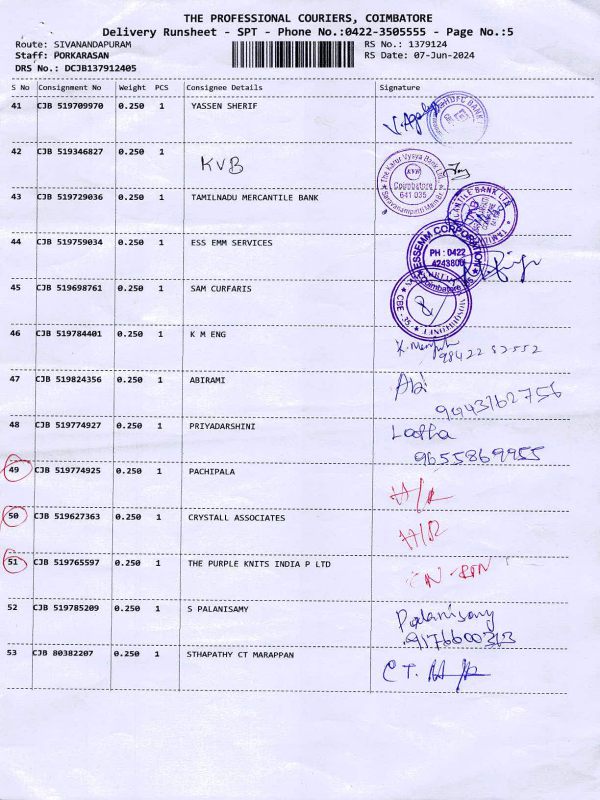 THE PROFESSIONAL COURIERS, COIMBATORE
Delivery Runsheet - SPT - Phone No.:0422-3505555 - Page No.:5
Route: SIVANANDAPURAM RS No.: 1379124
Staff: PORKARASAN RS Date: 07-Jun-2024
DRS No.: DCJB137912405
S No Consignment No Weight PCS Consignee Details Signature
41 CJB 519709970 0.250 1 YASSEN SHERIF
HDFC BANK
42 CJB 519346827 0.250 1 KVB
The Karur Vysya Bank Ltd.
KVB
Coimbatore
641 035
Saravanampatti
43 CJB 519729036 0.250 1 TAMILNADU MERCANTILE BANK
44 CJB 519759034 0.250 1 ESS EMM SERVICES
ESSEMM CORPORATION
PH : 0422
4243800
Coimbatore
45 CJB 519698761 0.250 1 SAM CURFARIS
CBE - 35
46 CJB 519784401 0.250 1 K M ENG
98422 82552
47 CJB 519824356 0.250 1 ABIRAMI Abi
9443162756
48 CJB 519774927 0.250 1 PRIYADARSHINI
9655869955
49 CJB 519774925 0.250 1 PACHIPALA H/R
50 CJB 519627363 0.250 1 CRYSTALL ASSOCIATES H/R
51 CJB 519765597 0.250 1 THE PURPLE KNITS INDIA P LTD
52 CJB 519785209 0.250 1 S PALANISAMY Palanisamy
9176600313
53 CJB 80382207 0.250 1 STHAPATHY CT MARAPPAN C T.